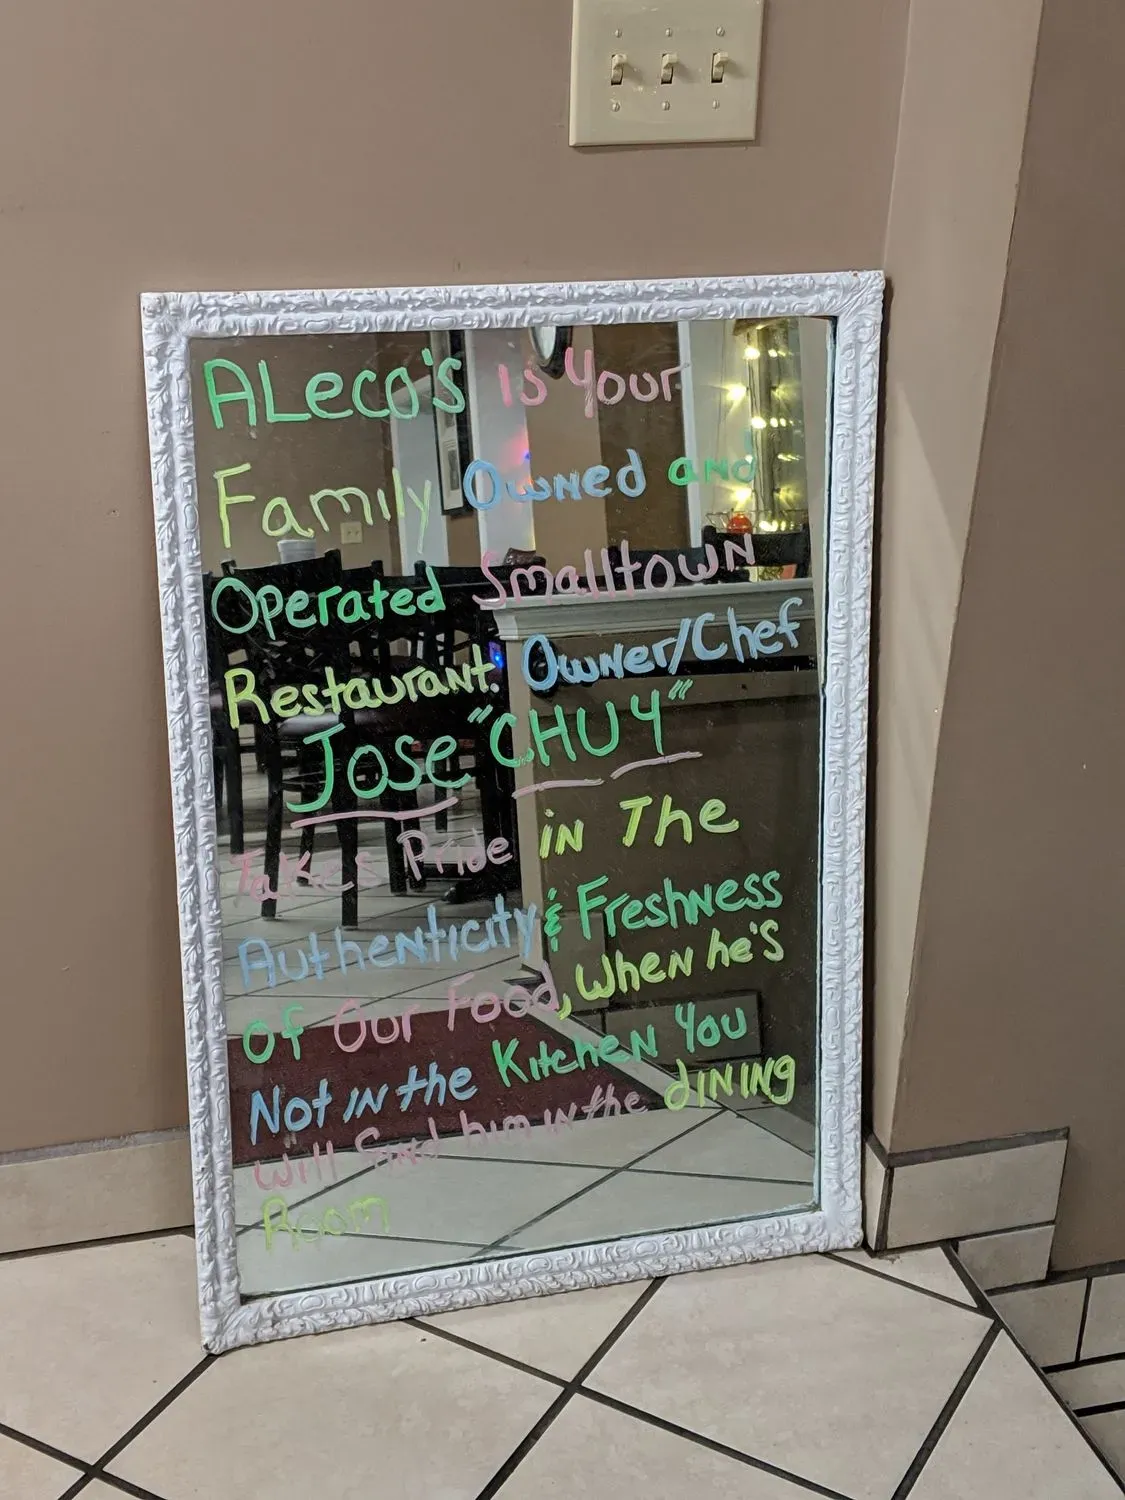 ALeco's is Your
Family Owned and
Operated Smalltown
Restaurant. Owner/Chef
Jose "CHUY"
Takes Pride in The
Authenticity & Freshness
of Our Food, When he's
Not in the Kitchen You
will find him in the dining
Room